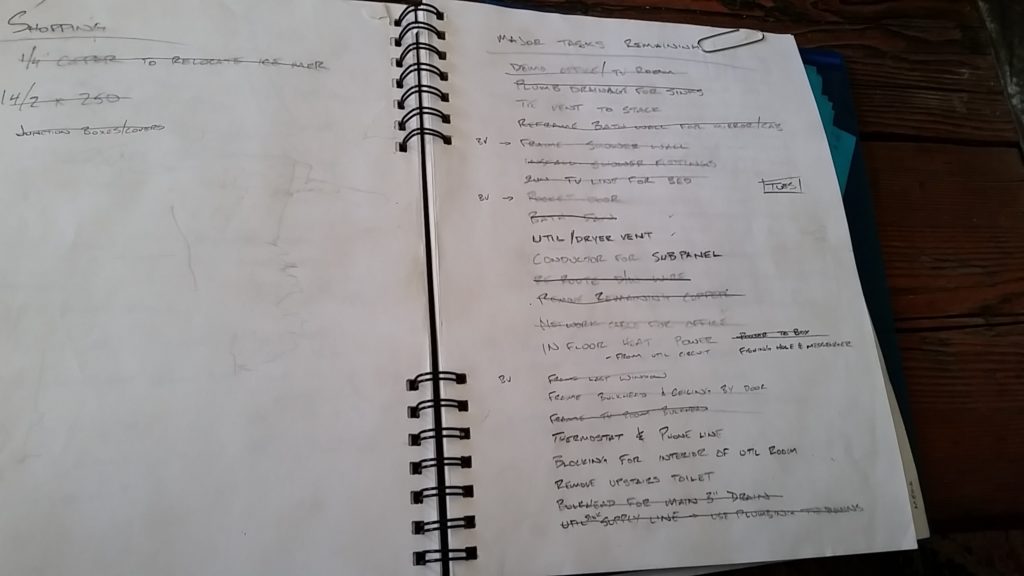 SHOPPING
1/4 COPPER TO RELOCATE ICE
14/2 x 250
JUNCTION BOXES/COVERS
MAJOR TASKS REMAINING
DEMO OFFICE/TV ROOM
PLUMB DRAINAGE FOR SINKS
TIE VENT TO STACK
REFRAME BATH WALL FOR MIRROR/CAB
BV → FRAME SHOWER WALL
INSTALL SHOWER FITTINGS
RUN TV LINE FOR BED
TUES
BV → POCKET DOOR
BATH FAN
UTIL/DRYER VENT
CONDUCTOR FOR SUBPANEL
RE ROUTE WIRE
REMOVE REMAINING COPPER
NETWORK CABLE FOR OFFICE
IN FLOOR HEAT POWER POWER TO BOX
- FROM UTIL CIRCUIT FISHING HOLE & MESSENGER
BV FRAME LAST WINDOW
FRAME BULKHEAD & CEILING BY DOOR
FRAME TV ROOM BULKHEAD
THERMOSTAT & PHONE LINE
BLOCKING FOR INTERIOR OF UTIL ROOM
REMOVE UPSTAIRS TOILET
BULKHEAD FOR MAIN 3" DRAIN
UTIL SUPPLY LINE → USE PLUMBING